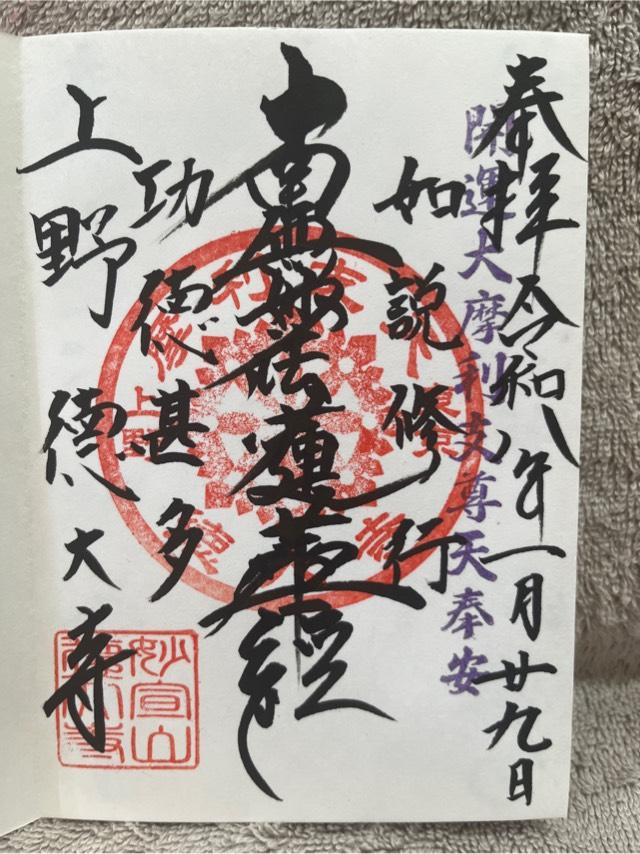 奉拝 令和八年一月廿九日
開運大摩利支尊天奉安
如説修行
南無妙法蓮華経
功徳甚多
上野 徳大寺
摩利支天
東京
上野
徳大寺
妙宣山
徳大寺